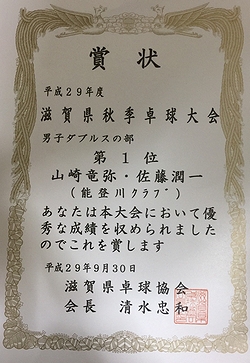 賞状
平成29年度
滋賀県秋季卓球大会
男子ダブルスの部
第1位
山崎竜弥・佐藤潤一
(能登川クラブ)
あなたは本大会において優
秀な成績を収められました
のでこれを賞します
平成29年9月30日
滋賀県卓球協会
会長 清水忠和